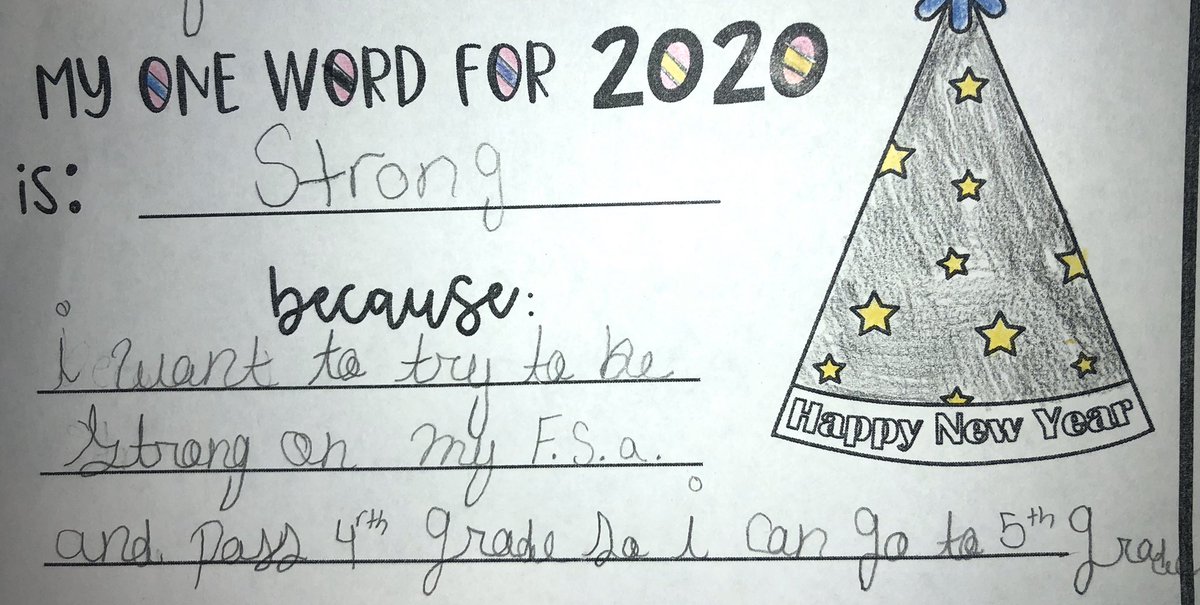 MY ONE WORD FOR 2020
is: Strong
because:
i want to try to be
Strong on my F.S.a.
and pass 4rth grade so i can go to 5th grade
Happy New Year